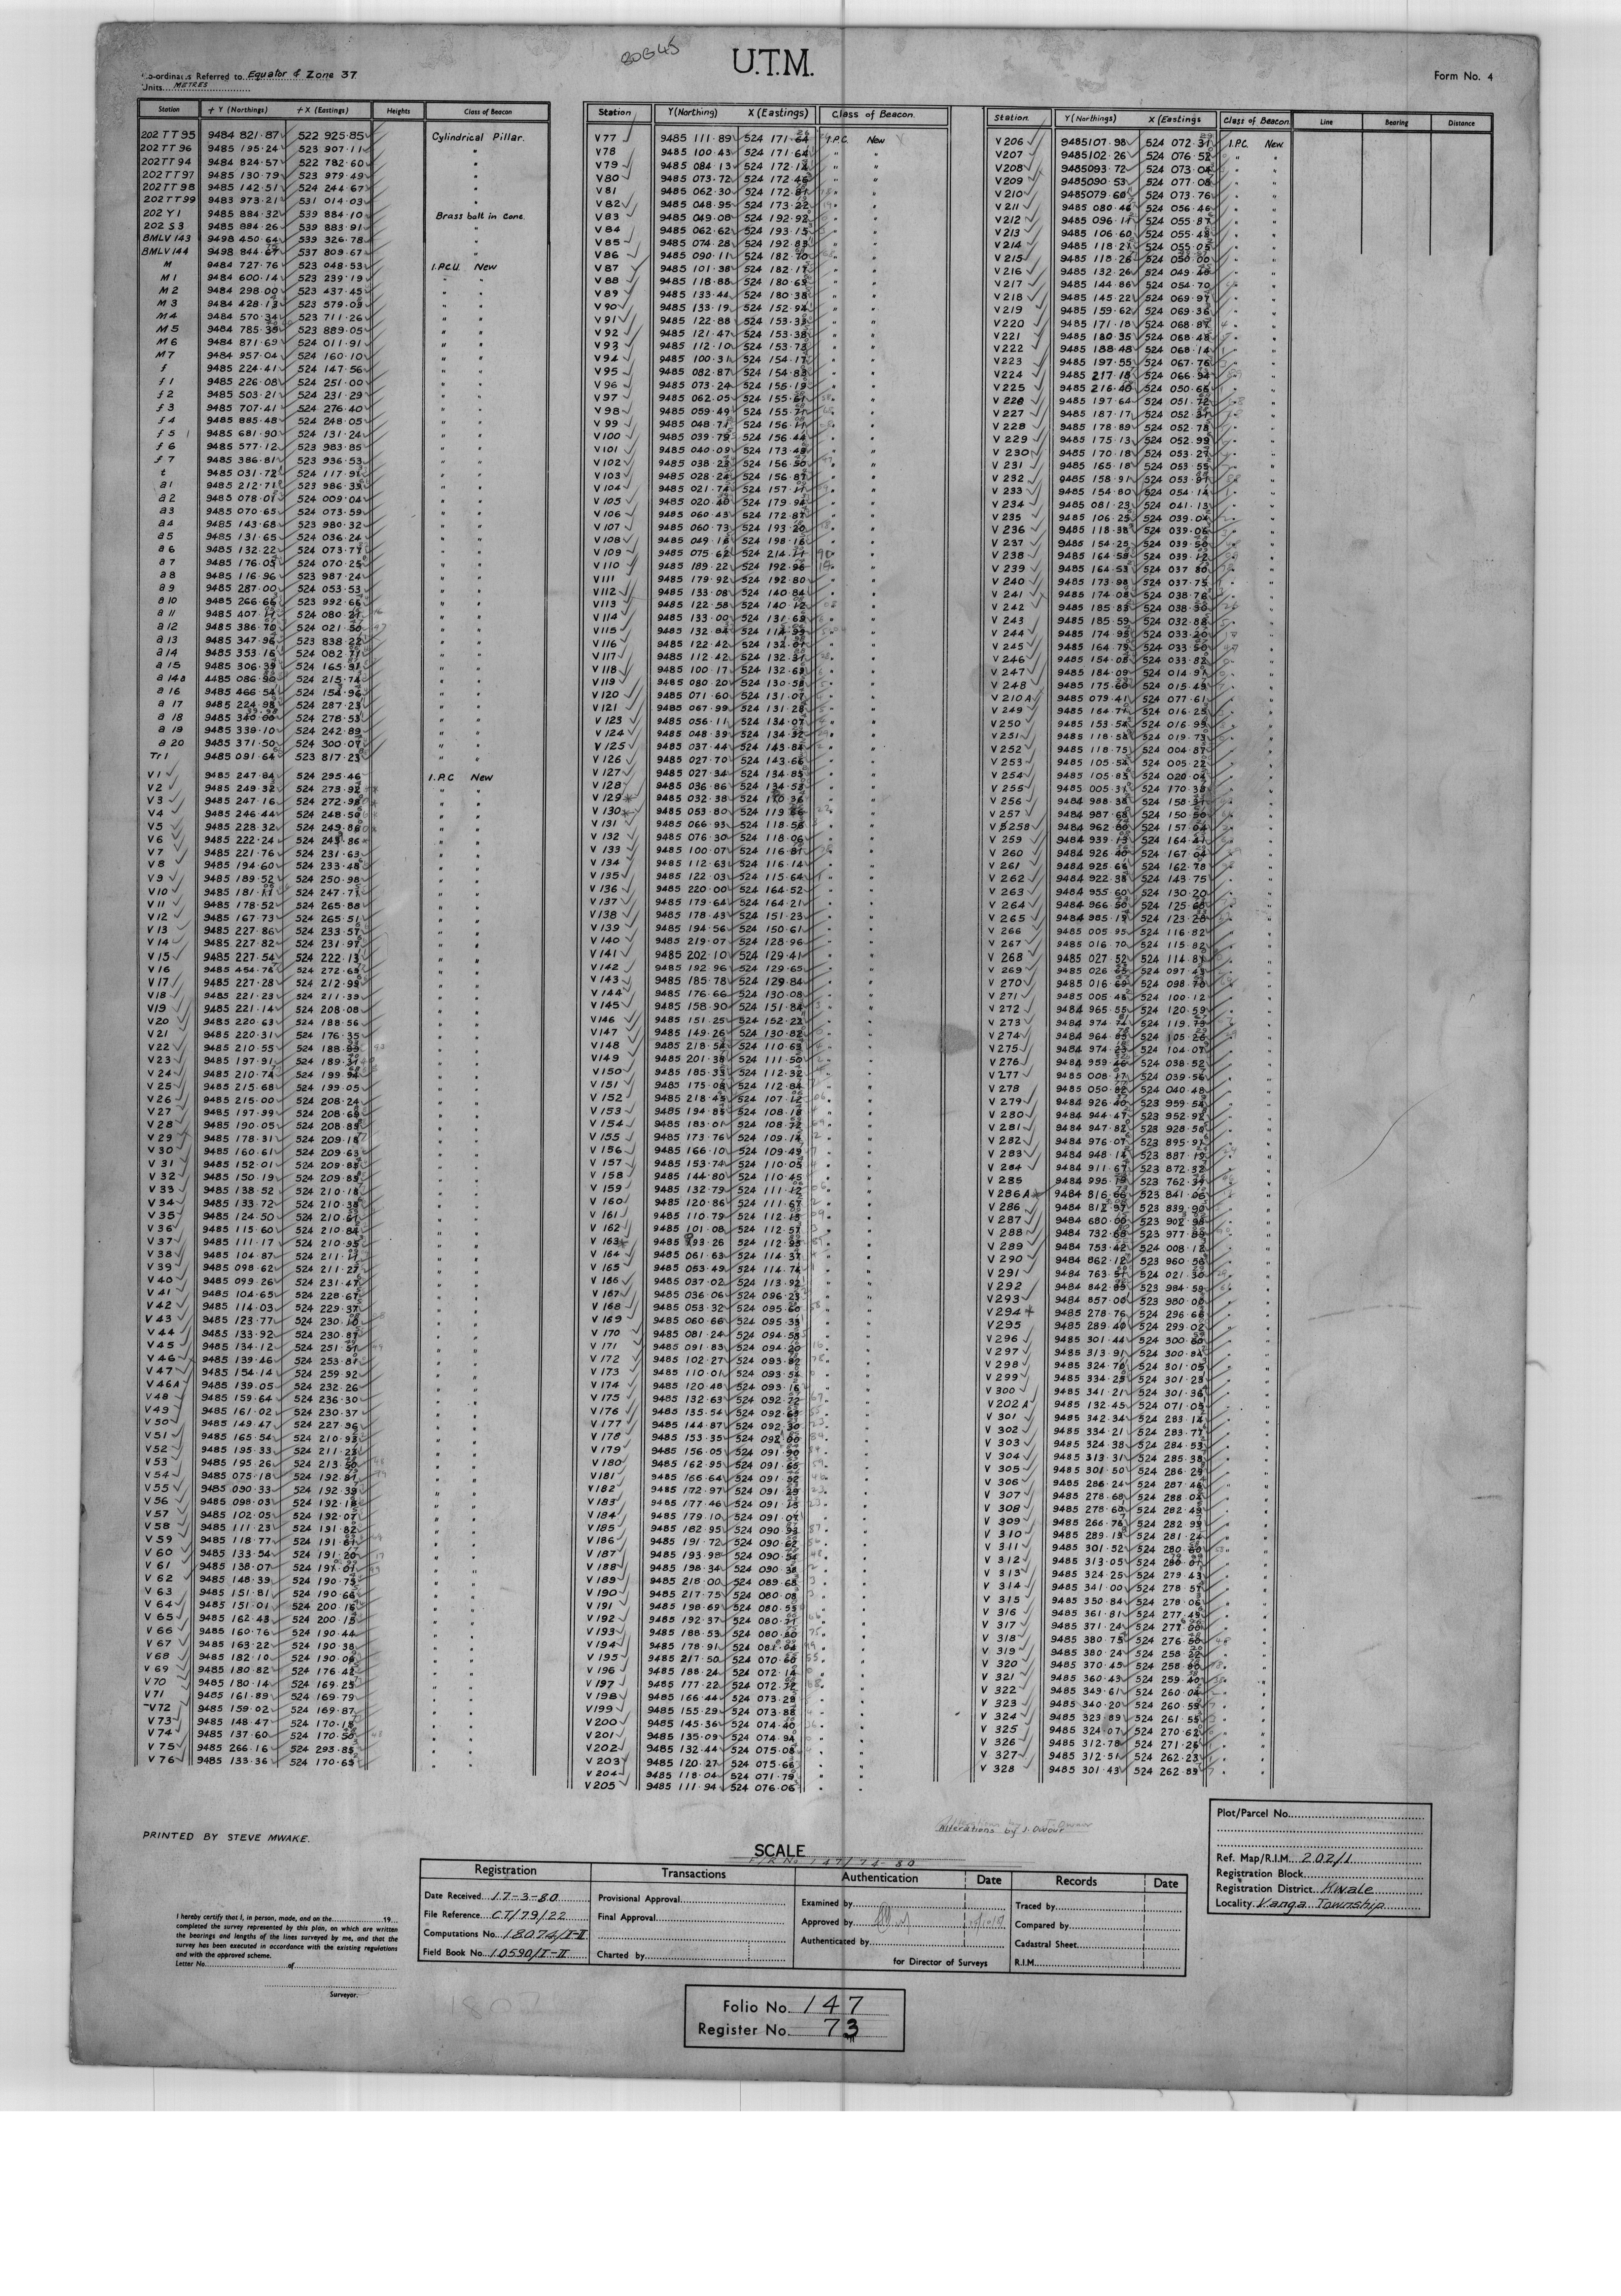 80B45
U.T.M.
Form No. 4
Co-ordinates Referred to Equator & Zone 37
Units METRES
Station + Y (Northings) + X (Eastings) Heights Class of Beacon
202 TT 95 9484 821·87 522 925·85 Cylindrical Pillar.
202 TT 96 9485 195·24 523 907·11 "
202 TT 94 9484 824·57 522 782·60 "
202 TT 97 9485 130·79 523 979·49 "
202 TT 98 9485 142·51 524 244·67 "
202 TT 99 9483 973·21 531 014·03 "
202 Y1 9485 884·32 539 884·10 Brass bolt in Conc.
202 S3 9485 884·26 539 883·91 "
BMLV 143 9498 450·64 539 326·78 "
BMLV 144 9498 844·67 537 809·67 "
M 9484 727·76 523 048·53 I.P.C.U. New
M1 9484 600·14 523 239·19 " "
M2 9484 298·00 523 437·45 " "
M3 9484 428·13 523 579·09 " "
M4 9484 570·34 523 711·26 " "
M5 9484 785·39 523 889·05 " "
M6 9484 871·69 524 011·91 " "
M7 9484 957·04 524 160·10 " "
f 9485 224·41 524 147·56 " "
f1 9485 226·08 524 251·00 " "
f2 9485 503·21 524 231·29 " "
f3 9485 707·41 524 276·40 " "
f4 9485 885·48 524 248·05 " "
f5 9485 681·90 524 131·24 " "
f6 9485 577·12 523 983·85 " "
f7 9485 386·81 523 936·53 " "
t 9485 031·72 524 117·91 " "
a1 9485 212·71 523 986·35 " "
a2 9485 078·01 524 009·04 " "
a3 9485 070·65 524 073·59 " "
a4 9485 143·68 523 980·32 " "
a5 9485 131·65 524 036·24 " "
a6 9485 132·22 524 073·71 " "
a7 9485 176·05 524 070·25 " "
a8 9485 116·96 523 987·24 " "
a9 9485 287·00 524 053·53 " "
a10 9485 266·66 523 992·66 " "
a11 9485 407·17 524 080·21 " "
a12 9485 386·70 524 021·50 " "
a13 9485 347·96 523 838·22 " "
a14 9485 353·16 524 082·71 " "
a15 9485 306·39 524 165·91 " "
a14a 4485 086·90 524 215·74 " "
a16 9485 466·54 524 154·96 " "
a17 9485 224·98 524 287·23 " "
a18 9485 340·00 524 278·53 " "
a19 9485 339·10 524 242·89 " "
a20 9485 371·50 524 300·07 " "
Tr1 9485 091·64 523 817·23 " "
V1 9485 247·84 524 295·46 I.P.C New
V2 9485 249·32 524 273·92 " "
V3 9485 247·16 524 272·98 " "
V4 9485 246·44 524 248·50 " "
V5 9485 228·32 524 249·86 " "
V6 9485 222·24 524 243·86 " "
V7 9485 221·76 524 231·63 " "
V8 9485 194·60 524 233·48 " "
V9 9485 189·52 524 250·98 " "
V10 9485 181·11 524 247·71 " "
V11 9485 178·52 524 265·88 " "
V12 9485 167·73 524 265·51 " "
V13 9485 227·86 524 233·57 " "
V14 9485 227·82 524 231·97 " "
V15 9485 227·54 524 222·13 " "
V16 9485 454·76 524 272·69 " "
V17 9485 227·28 524 212·99 " "
V18 9485 221·23 524 211·39 " "
V19 9485 221·14 524 208·08 " "
V20 9485 220·63 524 188·56 " "
V21 9485 220·31 524 176·35 " "
V22 9485 210·55 524 188·89 " "
V23 9485 197·91 524 189·34 " "
V24 9485 210·74 524 199·94 " "
V25 9485 215·68 524 199·05 " "
V26 9485 215·00 524 208·24 " "
V27 9485 197·99 524 208·69 " "
V28 9485 190·05 524 208·89 " "
V29 9485 178·31 524 209·18 " "
V30 9485 160·61 524 209·63 " "
V31 9485 152·01 524 209·85 " "
V32 9485 150·19 524 209·89 " "
V33 9485 138·52 524 210·18 " "
V34 9485 133·72 524 210·38 " "
V35 9485 124·50 524 210·61 " "
V36 9485 115·60 524 210·84 " "
V37 9485 111·17 524 210·95 " "
V38 9485 104·87 524 211·11 " "
V39 9485 098·62 524 211·27 " "
V40 9485 099·26 524 231·47 " "
V41 9485 104·65 524 228·67 " "
V42 9485 114·03 524 229·37 " "
V43 9485 123·77 524 230·10 " "
V44 9485 133·92 524 230·87 " "
V45 9485 134·12 524 251·51 " "
V46 9485 139·46 524 253·81 " "
V47 9485 154·14 524 259·92 " "
V46A 9485 139·05 524 232·26 " "
V48 9485 159·64 524 236·30 " "
V49 9485 161·02 524 230·37 " "
V50 9485 149·47 524 227·96 " "
V51 9485 165·54 524 210·93 " "
V52 9485 195·33 524 211·23 " "
V53 9485 195·26 524 213·50 " "
V54 9485 075·18 524 192·81 " "
V55 9485 090·33 524 192·39 " "
V56 9485 098·03 524 192·18 " "
V57 9485 102·05 524 192·07 " "
V58 9485 111·23 524 191·82 " "
V59 9485 118·77 524 191·61 " "
V60 9485 133·54 524 191·20 " "
V61 9485 138·07 524 191·01 " "
V62 9485 148·39 524 190·75 " "
V63 9485 151·81 524 190·66 " "
V64 9485 151·01 524 200·16 " "
V65 9485 162·43 524 200·15 " "
V66 9485 160·76 524 190·44 " "
V67 9485 163·22 524 190·38 " "
V68 9485 182·10 524 190·06 " "
V69 9485 180·82 524 176·42 " "
V70 9485 180·14 524 169·25 " "
V71 9485 161·89 524 169·79 " "
V72 9485 159·02 524 169·87 " "
V73 9485 148·47 524 170·18 " "
V74 9485 137·60 524 170·50 " "
V75 9485 266·16 524 293·85 " "
V76 9485 133·36 524 170·63 " "
Station Y (Northing) X (Eastings) Class of Beacon.
V77 9485 111·89 524 171·64 I.P.C. New
V78 9485 100·43 524 171·64 " "
V79 9485 084·13 524 172·12 " "
V80 9485 073·72 524 172·46 " "
V81 9485 062·30 524 172·81 " "
V82 9485 048·95 524 173·22 " "
V83 9485 049·08 524 192·92 " "
V84 9485 062·62 524 193·15 " "
V85 9485 074·28 524 192·83 " "
V86 9485 090·11 524 182·70 " "
V87 9485 101·38 524 182·17 " "
V88 9485 118·88 524 180·65 " "
V89 9485 133·44 524 180·38 " "
V90 9485 133·19 524 152·94 " "
V91 9485 122·88 524 153·33 " "
V92 9485 121·47 524 153·38 " "
V93 9485 112·10 524 153·73 " "
V94 9485 100·31 524 154·17 " "
V95 9485 082·87 524 154·83 " "
V96 9485 073·24 524 155·19 " "
V97 9485 062·05 524 155·61 " "
V98 9485 059·49 524 155·71 " "
V99 9485 048·71 524 156·11 " "
V100 9485 039·79 524 156·44 " "
V101 9485 040·09 524 173·49 " "
V102 9485 038·23 524 156·50 " "
V103 9485 028·24 524 156·87 " "
V104 9485 021·74 524 157·11 " "
V105 9485 020·40 524 179·94 " "
V106 9485 060·43 524 172·87 " "
V107 9485 060·73 524 193·20 " "
V108 9485 049·16 524 198·16 " "
V109 9485 075·62 524 214·11 " "
V110 9485 189·22 524 192·96 " "
V111 9485 179·92 524 192·80 " "
V112 9485 133·08 524 140·84 " "
V113 9485 122·58 524 140·12 " "
V114 9485 133·00 524 131·69 " "
V115 9485 132·84 524 114·99 " "
V116 9485 122·42 524 132·01 " "
V117 9485 112·42 524 132·31 " "
V118 9485 100·17 524 132·63 " "
V119 9485 080·20 524 130·58 " "
V120 9485 071·60 524 131·07 " "
V121 9485 067·99 524 131·28 " "
V123 9485 056·11 524 134·07 " "
V124 9485 048·39 524 134·32 " "
V125 9485 037·44 524 143·84 " "
V126 9485 027·70 524 143·66 " "
V127 9485 027·34 524 134·85 " "
V128 9485 036·86 524 134·53 " "
V129 9485 032·38 524 110·36 " "
V130 9485 053·80 524 119·66 " "
V131 9485 066·93 524 118·56 " "
V132 9485 076·30 524 118·06 " "
V133 9485 100·07 524 116·81 " "
V134 9485 112·63 524 116·14 " "
V135 9485 122·03 524 115·64 " "
V136 9485 220·00 524 164·52 " "
V137 9485 179·64 524 164·21 " "
V138 9485 178·43 524 151·23 " "
V139 9485 194·56 524 150·61 " "
V140 9485 219·07 524 128·96 " "
V141 9485 202·10 524 129·41 " "
V142 9485 192·96 524 129·65 " "
V143 9485 185·78 524 129·84 " "
V144 9485 176·66 524 130·08 " "
V145 9485 158·90 524 151·84 " "
V146 9485 151·25 524 152·22 " "
V147 9485 149·26 524 130·82 " "
V148 9485 218·54 524 110·63 " "
V149 9485 201·38 524 111·50 " "
V150 9485 185·33 524 112·32 " "
V151 9485 175·08 524 112·84 " "
V152 9485 218·45 524 107·12 " "
V153 9485 194·85 524 108·18 " "
V154 9485 183·01 524 108·72 " "
V155 9485 173·76 524 109·14 " "
V156 9485 166·10 524 109·49 " "
V157 9485 153·74 524 110·05 " "
V158 9485 144·80 524 110·45 " "
V159 9485 132·79 524 111·12 " "
V160 9485 120·86 524 111·67 " "
V161 9485 110·79 524 112·13 " "
V162 9485 101·08 524 112·57 " "
V163 9485 093·26 524 112·93 " "
V164 9485 061·63 524 114·37 " "
V165 9485 053·49 524 114·74 " "
V166 9485 037·02 524 113·92 " "
V167 9485 036·06 524 096·23 " "
V168 9485 053·32 524 095·60 " "
V169 9485 060·66 524 095·33 " "
V170 9485 081·24 524 094·58 " "
V171 9485 091·83 524 094·20 " "
V172 9485 102·27 524 093·82 " "
V173 9485 110·01 524 093·54 " "
V174 9485 120·48 524 093·16 " "
V175 9485 132·63 524 092·72 " "
V176 9485 135·54 524 092·63 " "
V177 9485 144·87 524 092·30 " "
V178 9485 153·35 524 092·00 " "
V179 9485 156·05 524 091·90 " "
V180 9485 162·95 524 091·65 " "
V181 9485 166·64 524 091·52 " "
V182 9485 172·97 524 091·29 " "
V183 9485 177·46 524 091·13 " "
V184 9485 179·10 524 091·07 " "
V185 9485 182·95 524 090·93 " "
V186 9485 191·72 524 090·62 " "
V187 9485 193·98 524 090·54 " "
V188 9485 198·34 524 090·38 " "
V189 9485 218·00 524 089·68 " "
V190 9485 217·75 524 080·08 " "
V191 9485 198·69 524 080·55 " "
V192 9485 192·37 524 080·71 " "
V193 9485 188·53 524 080·80 " "
V194 9485 178·91 524 081·04 " "
V195 9485 217·50 524 070·60 " "
V196 9485 188·24 524 072·14 " "
V197 9485 177·22 524 072·72 " "
V198 9485 166·44 524 073·29 " "
V199 9485 155·29 524 073·88 " "
V200 9485 145·36 524 074·40 " "
V201 9485 135·09 524 074·94 " "
V202 9485 132·44 524 075·08 " "
V203 9485 120·27 524 075·66 " "
V204 9485 118·04 524 071·79 " "
V205 9485 111·94 524 076·06 " "
Station Y (Northings) X (Eastings Class of Beacon. Line Bearing Distance
V206 9485107·98 524 072·31 I.P.C. New
V207 9485102·26 524 076·52 " "
V208 9485093·72 524 073·04 " "
V209 9485090·53 524 077·08 " "
V210 9485079·60 524 073·76 " "
V211 9485 080·46 524 056·46 " "
V212 9485 096·11 524 055·87 " "
V213 9485 106·60 524 055·48 " "
V214 9485 118·21 524 055·05 " "
V215 9485 118·26 524 050·00 " "
V216 9485 132·26 524 049·48 " "
V217 9485 144·86 524 054·70 " "
V218 9485 145·22 524 069·97 " "
V219 9485 159·62 524 069·36 " "
V220 9485 171·18 524 068·87 " "
V221 9485 180·35 524 068·48 " "
V222 9485 188·48 524 068·14 " "
V223 9485 197·55 524 067·76 " "
V224 9485 217·18 524 066·94 " "
V225 9485 216·40 524 050·66 " "
V226 9485 197·64 524 051·72 " "
V227 9485 187·17 524 052·31 " "
V228 9485 178·89 524 052·78 " "
V229 9485 175·13 524 052·99 " "
V230 9485 170·18 524 053·27 " "
V231 9485 165·18 524 053·55 " "
V232 9485 158·91 524 053·91 " "
V233 9485 154·80 524 054·14 " "
V234 9485 081·23 524 041·13 " "
V235 9485 106·25 524 039·04 " "
V236 9485 118·38 524 039·06 " "
V237 9485 154·25 524 039·50 " "
V238 9485 164·58 524 039·12 " "
V239 9485 164·53 524 037·80 " "
V240 9485 173·98 524 037·75 " "
V241 9485 174·08 524 038·78 " "
V242 9485 185·83 524 038·30 " "
V243 9485 185·59 524 032·88 " "
V244 9485 174·95 524 033·20 " "
V245 9485 164·79 524 033·50 " "
V246 9485 154·08 524 033·82 " "
V247 9485 184·09 524 014·91 " "
V248 9485 175·60 524 015·49 " "
V210A 9485 079·41 524 077·61 " "
V249 9485 164·71 524 016·25 " "
V250 9485 153·54 524 016·99 " "
V251 9485 118·58 524 019·73 " "
V252 9485 118·75 524 004·87 " "
V253 9485 105·54 524 005·22 " "
V254 9485 105·83 524 020·04 " "
V255 9485 005·31 524 170·38 " "
V256 9484 988·38 524 158·31 " "
V257 9484 987·68 524 150·50 " "
V258 9484 962·80 524 157·04 " "
V259 9484 939·19 524 164·41 " "
V260 9484 926·40 524 167·04 " "
V261 9484 925·66 524 162·78 " "
V262 9484 922·38 524 143·75 " "
V263 9484 955·60 524 130·20 " "
V264 9484 966·50 524 125·68 " "
V265 9484 985·19 524 123·28 " "
V266 9485 005·95 524 116·82 " "
V267 9485 016·70 524 115·82 " "
V268 9485 027·52 524 114·81 " "
V269 9485 026·65 524 097·43 " "
V270 9485 016·69 524 098·70 " "
V271 9485 005·48 524 100·12 " "
V272 9484 965·55 524 120·59 " "
V273 9484 974·74 524 119·79 " "
V274 9484 964·85 524 105·26 " "
V275 9484 974·23 524 104·07 " "
V276 9484 959·46 524 038·52 " "
V277 9485 008·17 524 039·56 " "
V278 9485 050·82 524 040·48 " "
V279 9484 926·40 523 959·54 " "
V280 9484 944·47 523 952·92 " "
V281 9484 947·82 523 928·50 " "
V282 9484 976·07 523 895·91 " "
V283 9484 948·14 523 887·19 " "
V284 9484 911·67 523 872·32 " "
V285 9484 995·19 523 762·34 " "
V286A 9484 816·66 523 841·06 " "
V286 9484 812·97 523 839·90 " "
V287 9484 680·00 523 902·98 " "
V288 9484 732·68 523 977·89 " "
V289 9484 753·42 524 008·12 " "
V290 9484 862·12 523 960·56 " "
V291 9484 763·51 524 021·30 " "
V292 9484 842·85 523 984·59 " "
V293 9484 857·00 523 980·00 " "
V294 9485 278·76 524 296·66 " "
V295 9485 289·40 524 299·02 " "
V296 9485 301·44 524 300·60 " "
V297 9485 313·91 524 300·84 " "
V298 9485 324·70 524 301·05 " "
V299 9485 334·25 524 301·23 " "
V300 9485 341·21 524 301·36 " "
V202A 9485 132·45 524 071·05 " "
V301 9485 342·34 524 283·14 " "
V302 9485 334·21 524 283·77 " "
V303 9485 324·38 524 284·53 " "
V304 9485 313·31 524 285·38 " "
V305 9485 301·50 524 286·29 " "
V306 9485 286·24 524 287·46 " "
V307 9485 278·68 524 288·04 " "
V308 9485 278·60 524 282·49 " "
V309 9485 266·76 524 282·99 " "
V310 9485 289·13 524 281·24 " "
V311 9485 301·52 524 280·60 " "
V312 9485 313·05 524 280·01 " "
V313 9485 324·25 524 279·43 " "
V314 9485 341·00 524 278·57 " "
V315 9485 350·84 524 278·06 " "
V316 9485 361·81 524 277·49 " "
V317 9485 371·24 524 277·00 " "
V318 9485 380·75 524 276·50 " "
V319 9485 380·24 524 258·22 " "
V320 9485 370·45 524 258·80 " "
V321 9485 360·49 524 259·40 " "
V322 9485 349·61 524 260·04 " "
V323 9485 340·20 524 260·59 " "
V324 9485 323·89 524 261·55 " "
V325 9485 324·07 524 270·62 " "
V326 9485 312·78 524 271·26 " "
V327 9485 312·51 524 262·23 " "
V328 9485 301·43 524 262·89 " "
PRINTED BY STEVE MWAKE.
Alterations by J. Owour
SCALE
F/R No 147/74-80
Registration Transactions Authentication Date Records Date
Date Received 17-3-80
File Reference CT/79/22
Computations No. 18074/I-II
Field Book No. 10590/I-II
Provisional Approval
Final Approval
Charted by
Examined by
Approved by
Authenticated by
for Director of Surveys
Traced by
Compared by
Cadastral Sheet
R.I.M.
Plot/Parcel No.
Ref. Map/R.I.M. 202/1
Registration Block
Registration District Kwale
Locality Vanga Township
I hereby certify that I, in person, made, and on the 19
completed the survey represented by this plan, on which are written
the bearings and lengths of the lines surveyed by me, and that the
survey has been executed in accordance with the existing regulations
and with the approved scheme.
Letter No. of
Surveyor.
Folio No. 147
Register No. 73